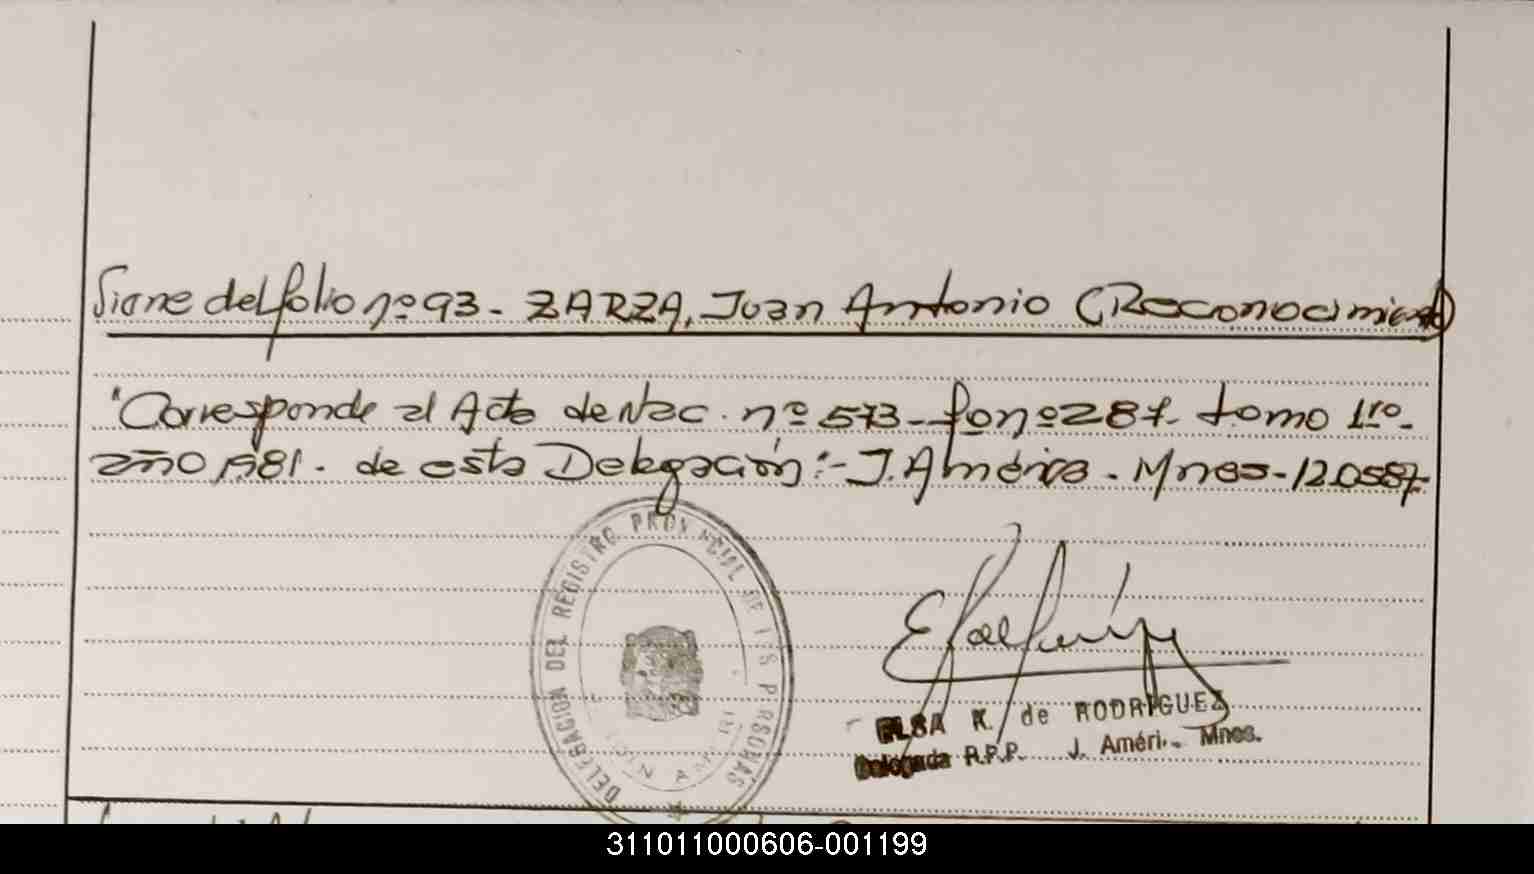 Siane del folio nº 93- ZARZA, Juan Antonio (Reconocimiento)
"Corresponde al Acta de Nac. nº 573- fo nº 287- tomo 1ro-
año 1981. de esta Delegación:- J. América - Mnes- 120587-
DELEGACION DEL REGISTRO PROVINCIAL DE LAS PERSONAS
ELSA K. de RODRIGUEZ
Delegada R.P.P. J. Améri. Mnes.
311011000606-001199